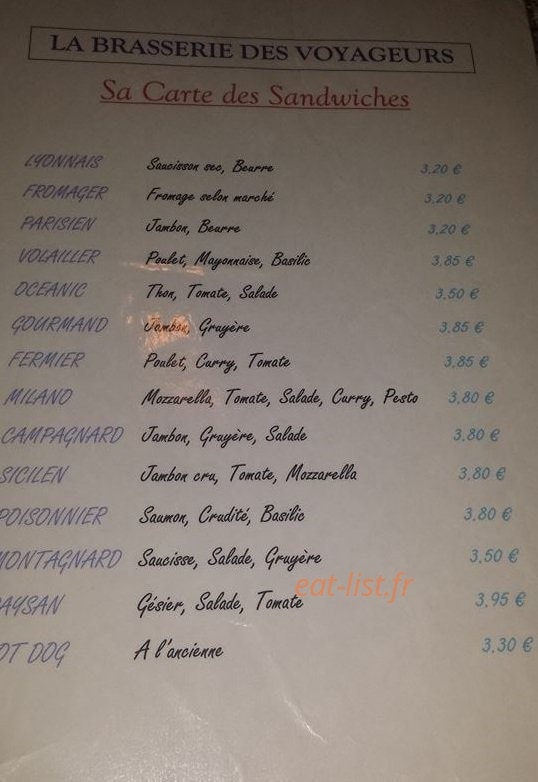 LA BRASSERIE DES VOYAGEURS
Sa Carte des Sandwiches
LYONNAIS Saucisson sec, Beurre 3,20 €
FROMAGER Fromage selon marché 3,20 €
PARISIEN Jambon, Beurre 3,20 €
VOLAILLER Poulet, Mayonnaise, Basilic 3,85 €
OCEANIC Thon, Tomate, Salade 3,50 €
GOURMAND Jambon, Gruyère 3,85 €
FERMIER Poulet, Curry, Tomate 3,85 €
MILANO Mozzarella, Tomate, Salade, Curry, Pesto 3,80 €
CAMPAGNARD Jambon, Gruyère, Salade 3,80 €
SICILEN Jambon cru, Tomate, Mozzarella 3,80 €
POISONNIER Saumon, Crudité, Basilic 3,80 €
MONTAGNARD Saucisse, Salade, Gruyère 3,50 €
eat-list.fr
AYSAN Gésier, Salade, Tomate 3,95 €
OT DOG A l'ancienne 3,30 €